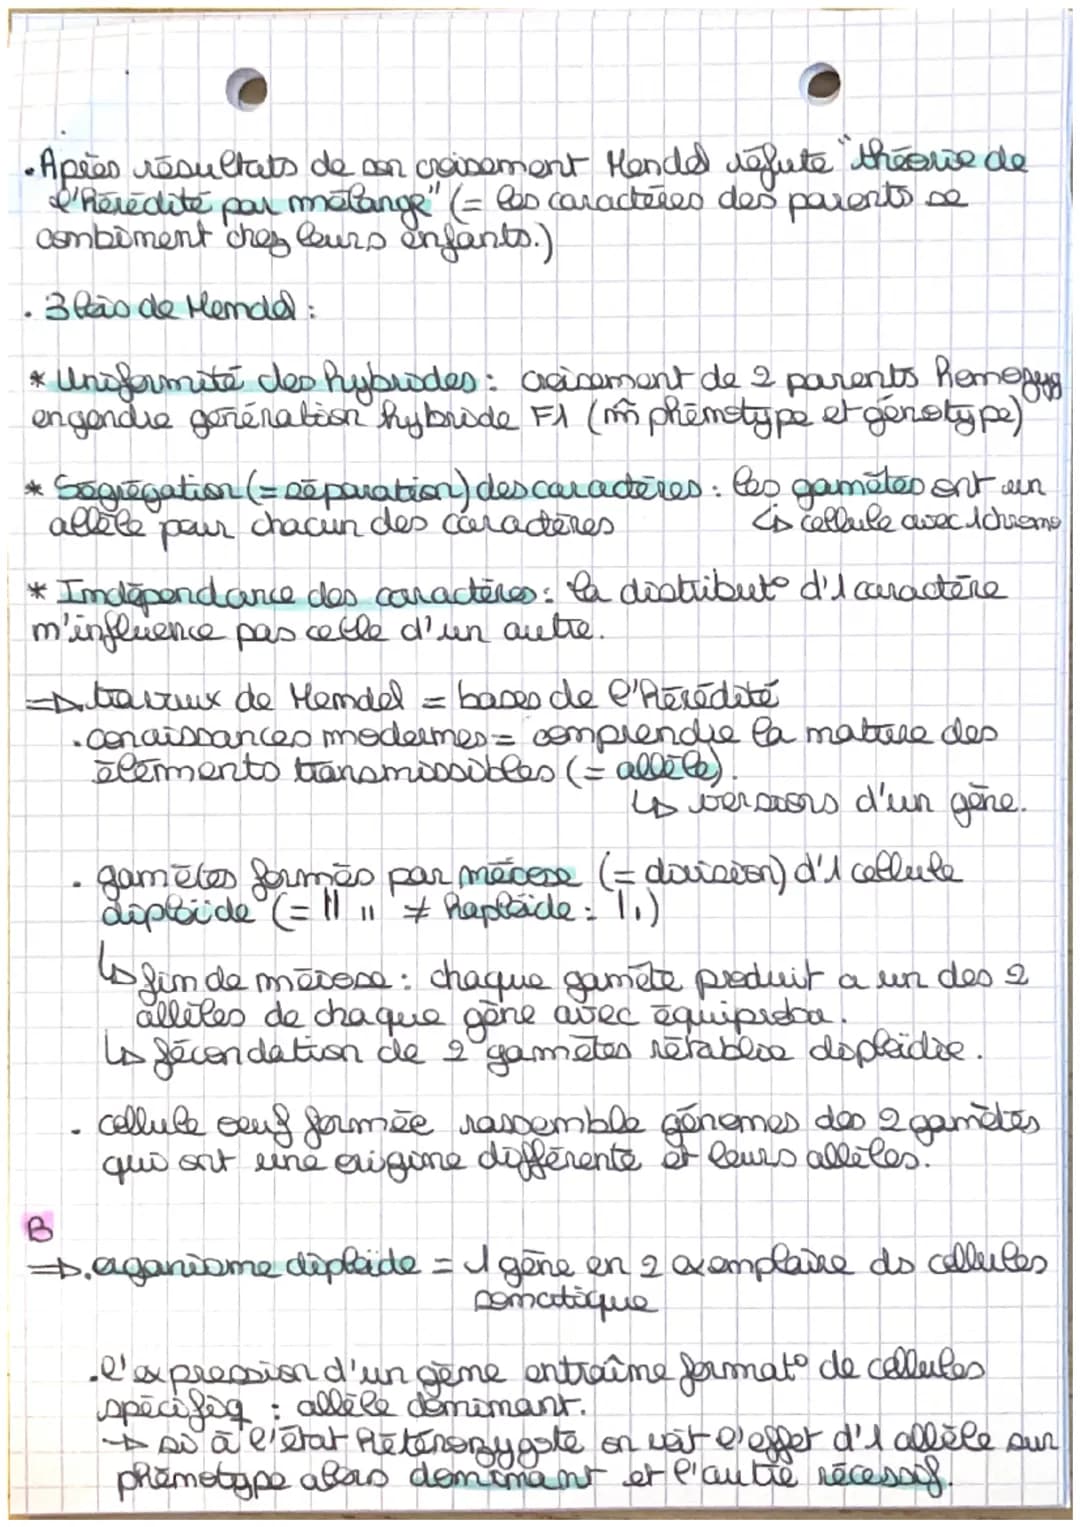 . Après résultats de son croisement Mendel réfute "théorie de
l'hérédité par mélange" (= les caractères des parents se
combinent chez leurs enfants.)
. 3 lois de Mendel :
* Uniformité des hybrides : croisement de 2 parents homozyg
engendre génération hybride F1 (m̂ phénotype et génotype)
* Ségrégation (= séparation) des caractères : les gamètes ont un
allèle pour chacun des caractères ↳ cellule avec 1 chromo
* Indépendance des caractères : la distribut° d'1 caractère
n'influence pas celle d'un autre.
⇒ . travaux de Mendel = bases de l'hérédité
. conaissances modernes = comprendre la nature des
éléments transmissibles (= allèle).
↳ versions d'un gène.
. gamètes formés par méiose (= division) d'1 cellule
diploïde (= || ıı ≠ haploïde : | ı)
↳ fin de méiose : chaque gamète produit a un des 2
allèles de chaque gène avec équiproba.
↳ fécondation de 2 gamètes rétablie diploïdie.
. cellule oeuf formée rassemble génomes des 2 gamètes
qui ont une origine différente et leurs allèles.
B
⇒ . organisme diploïde = 1 gène en 2 exemplaire ds cellules
somatique
. l'expression d'un gène entraîne format° de cellules
spécifiq : allèle dominant.
→ si à l'état hétérozygote on voit l'effet d'1 allèle sur
phénotype alors dominant et l'autre récessif.